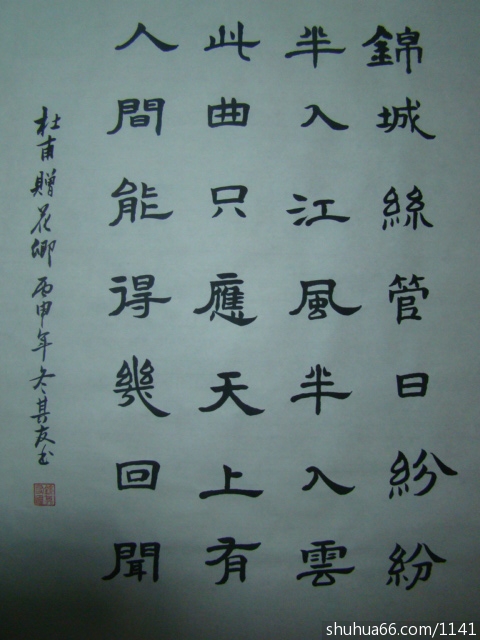 錦城絲管日紛紛
半入江風半入雲
此曲只應天上有
人間能得幾回聞
杜甫贈花卿 丙申年冬其友书
shuhua66.com/1141